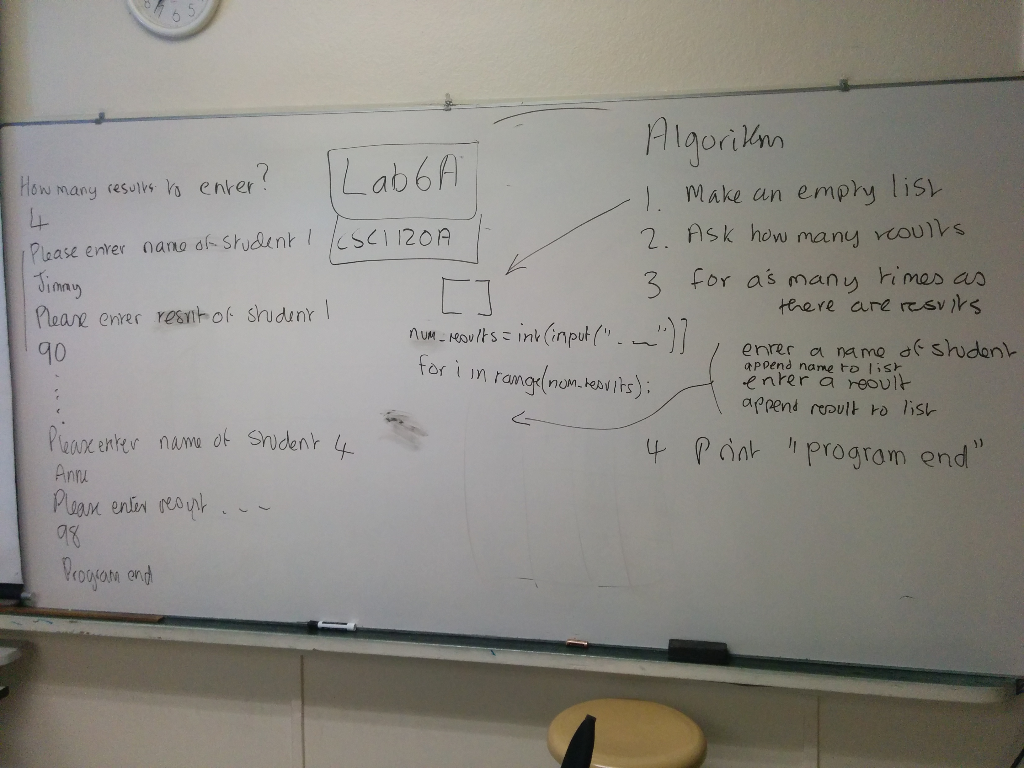 How many results to enter?
4
Please enter name of student 1
Jimmy
Please enter result of student 1
90
Please enter name of student 4
Anne
Please enter result . - -
98
Program end
Lab6A
CSC1120A
[ ]
num_results = int(input(". - -")]
for i in range(num_results):
Algorithm
1. Make an empty list
2. Ask how many results
3 for as many times as
there are results
enter a name of student
append name to list
enter a result
append result to list
4 Print "program end"